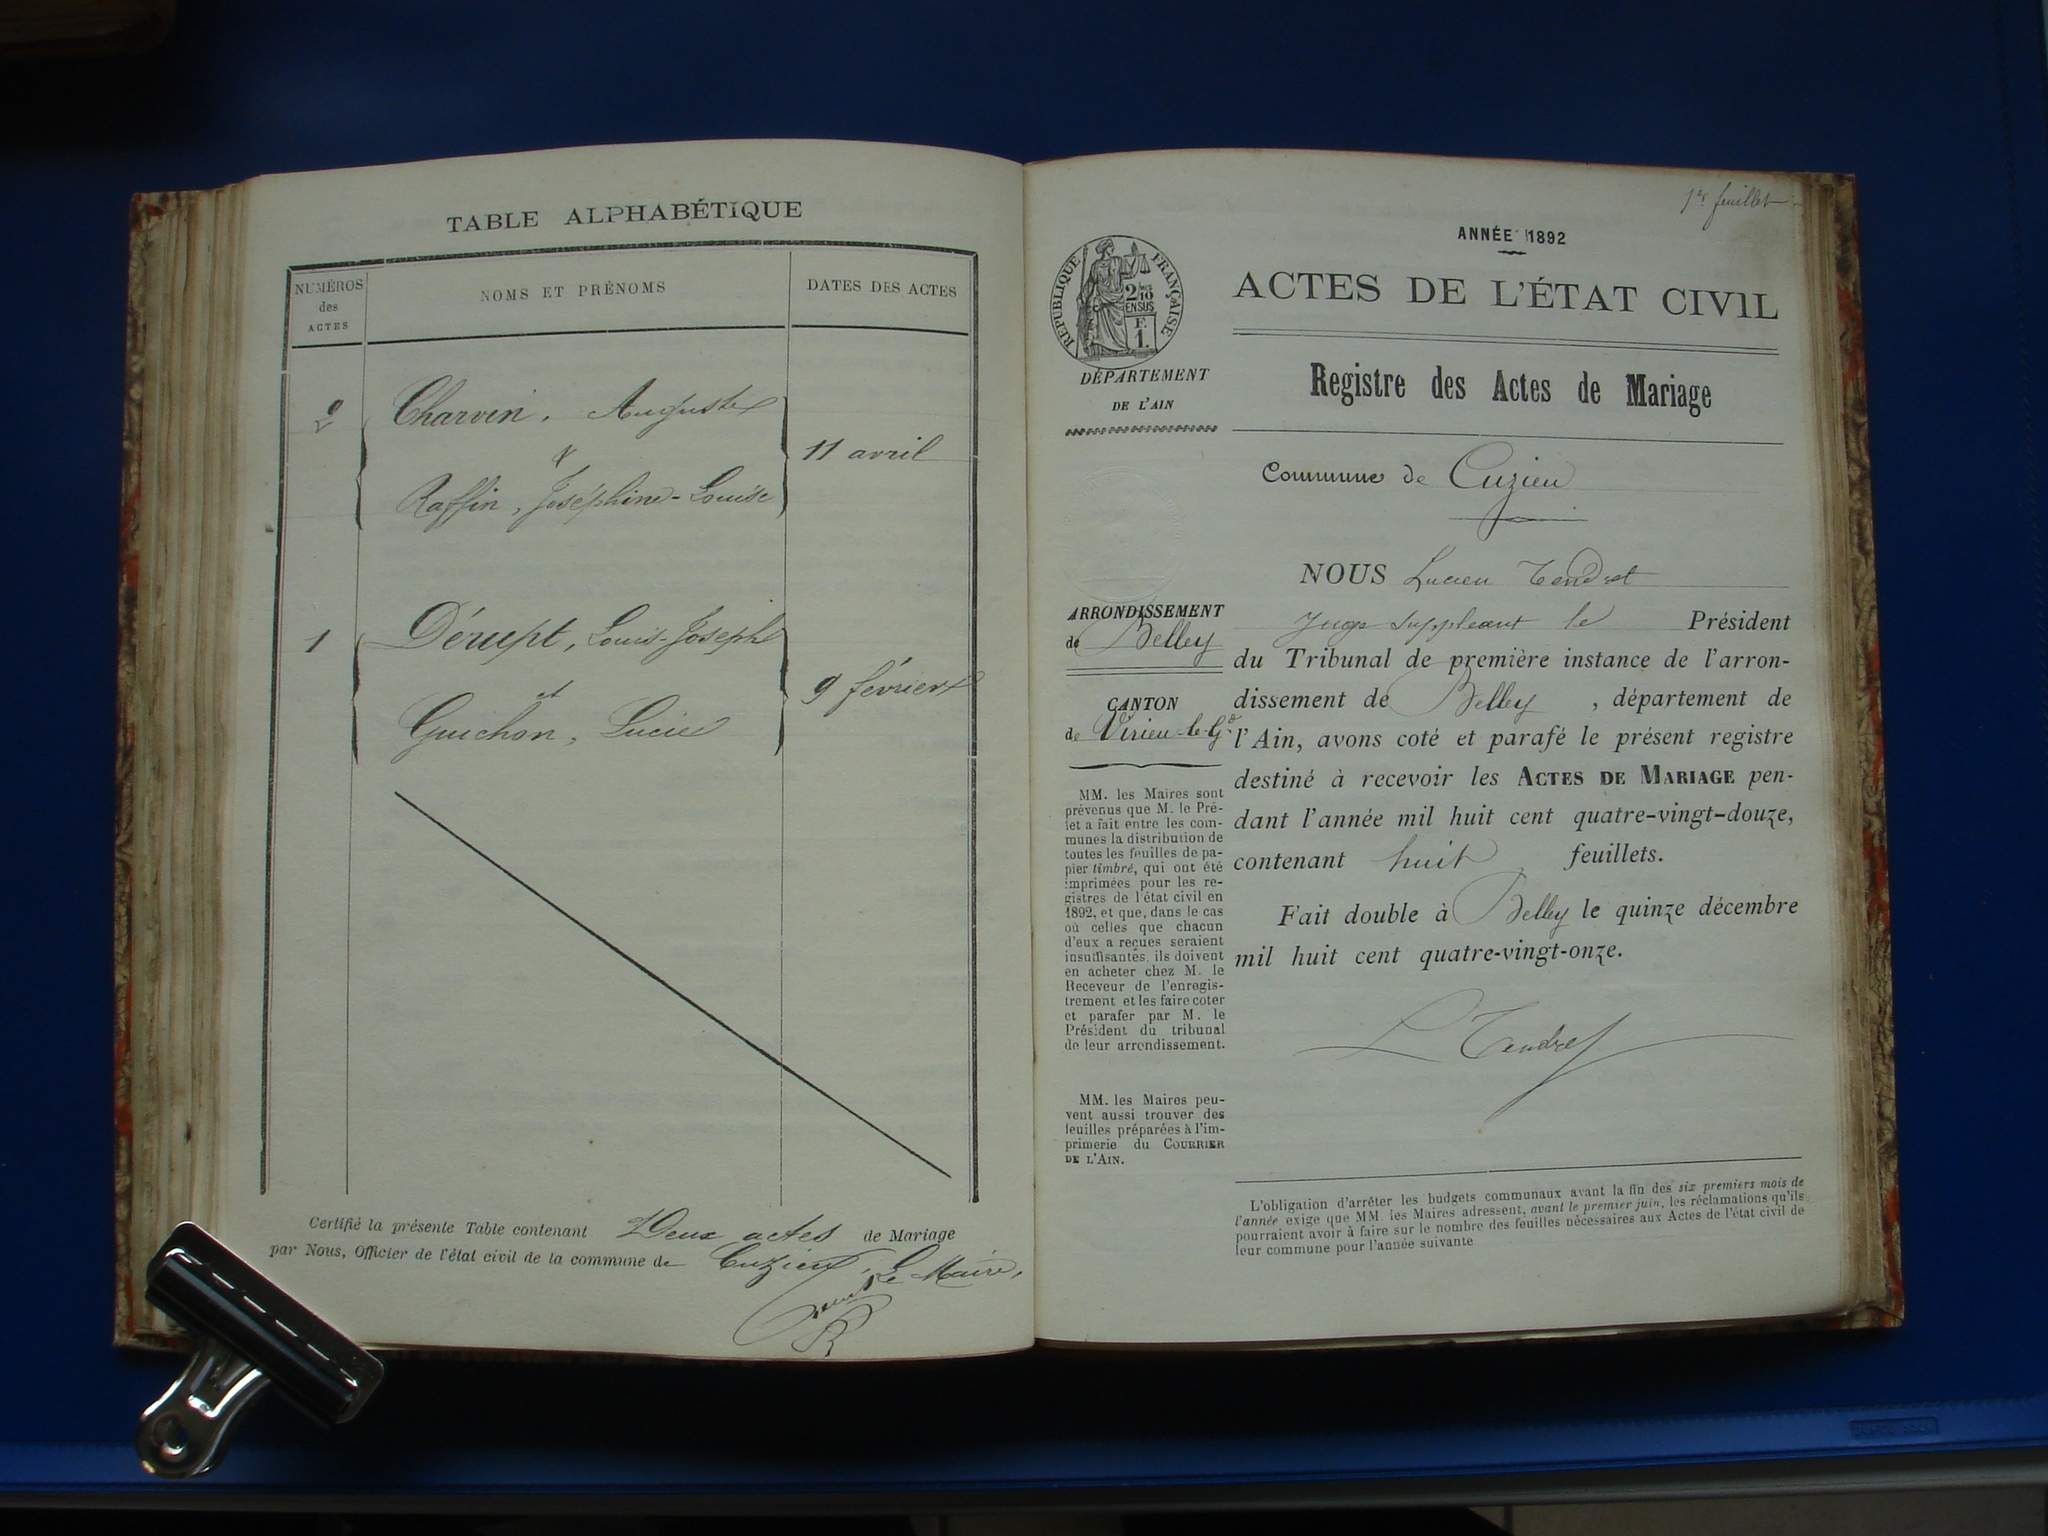 TABLE ALPHABÉTIQUE
NUMÉROS
des
ACTES
NOMS ET PRÉNOMS
DATES DES ACTES
2
Charvin, Auguste
&
Raffin, Joséphine-Louise
11 avril
1
Dérupt, Louis-Joseph
et
Guichon, Lucie
9 février
Certifié la présente Table contenant Deux actes de Mariage
par Nous, Officier de l'état civil de la commune de Cuzieu. Le Maire,
1er feuillet
ANNÉE 1892
RÉPUBLIQUE FRANÇAISE
2/10
EN SUS
F.
1.
ACTES DE L'ÉTAT CIVIL
DÉPARTEMENT
DE L'AIN
Registre des Actes de Mariage
Commune de Cuzieu
NOUS Lucien Tendret
Juge Suppléant le Président
du Tribunal de première instance de l'arron-
dissement de Belley, département de
l'Ain, avons coté et parafé le présent registre
destiné à recevoir les ACTES DE MARIAGE pen-
dant l'année mil huit cent quatre-vingt-douze,
contenant huit feuillets.
Fait double à Belley le quinze décembre
mil huit cent quatre-vingt-onze.
L Tendret
ARRONDISSEMENT
de Belley
CANTON
de Virieu-le-Gd
MM. les Maires sont
prévenus que M. le Pré-
fet a fait entre les com-
munes la distribution de
toutes les feuilles de pa-
pier timbré, qui ont été
imprimées pour les re-
gistres de l'état civil en
1892, et que, dans le cas
où celles que chacun
d'eux a reçues seraient
insuffisantes, ils doivent
en acheter chez M. le
Receveur de l'enregis-
trement et les faire coter
et parafer par M. le
Président du tribunal
de leur arrondissement.
MM. les Maires peu-
vent aussi trouver des
feuilles préparées à l'im-
primerie du COURRIER
DE L'AIN.
L'obligation d'arrêter les budgets communaux avant la fin des six premiers mois de
l'année exige que MM. les Maires adressent, avant le premier juin, les réclamations qu'ils
pourraient avoir à faire sur le nombre des feuilles nécessaires aux Actes de l'état civil de
leur commune pour l'année suivante